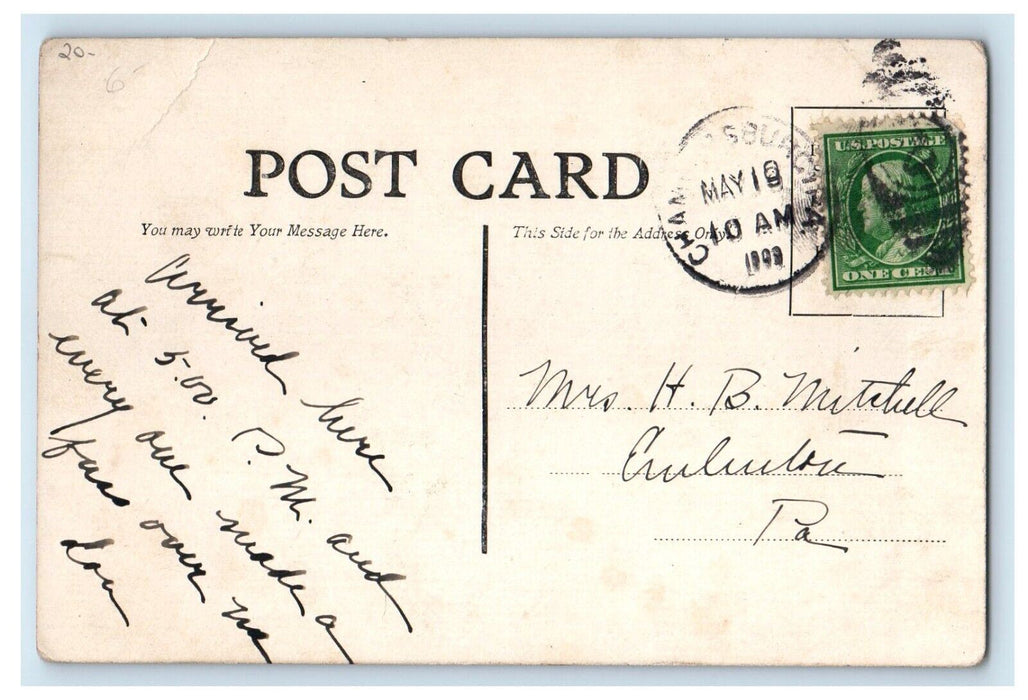 20-
6
POST CARD
You may write Your Message Here.
This Side for the Address Only.
CHAM SBURG, PA
MAY 19
10 AM
1909
U.S. POSTAGE
ONE CENT
arrived here
at 5.00. P. M. and
every one made a
fuss over me
Mrs. H. B. Mitchell
Emlenton
Pa